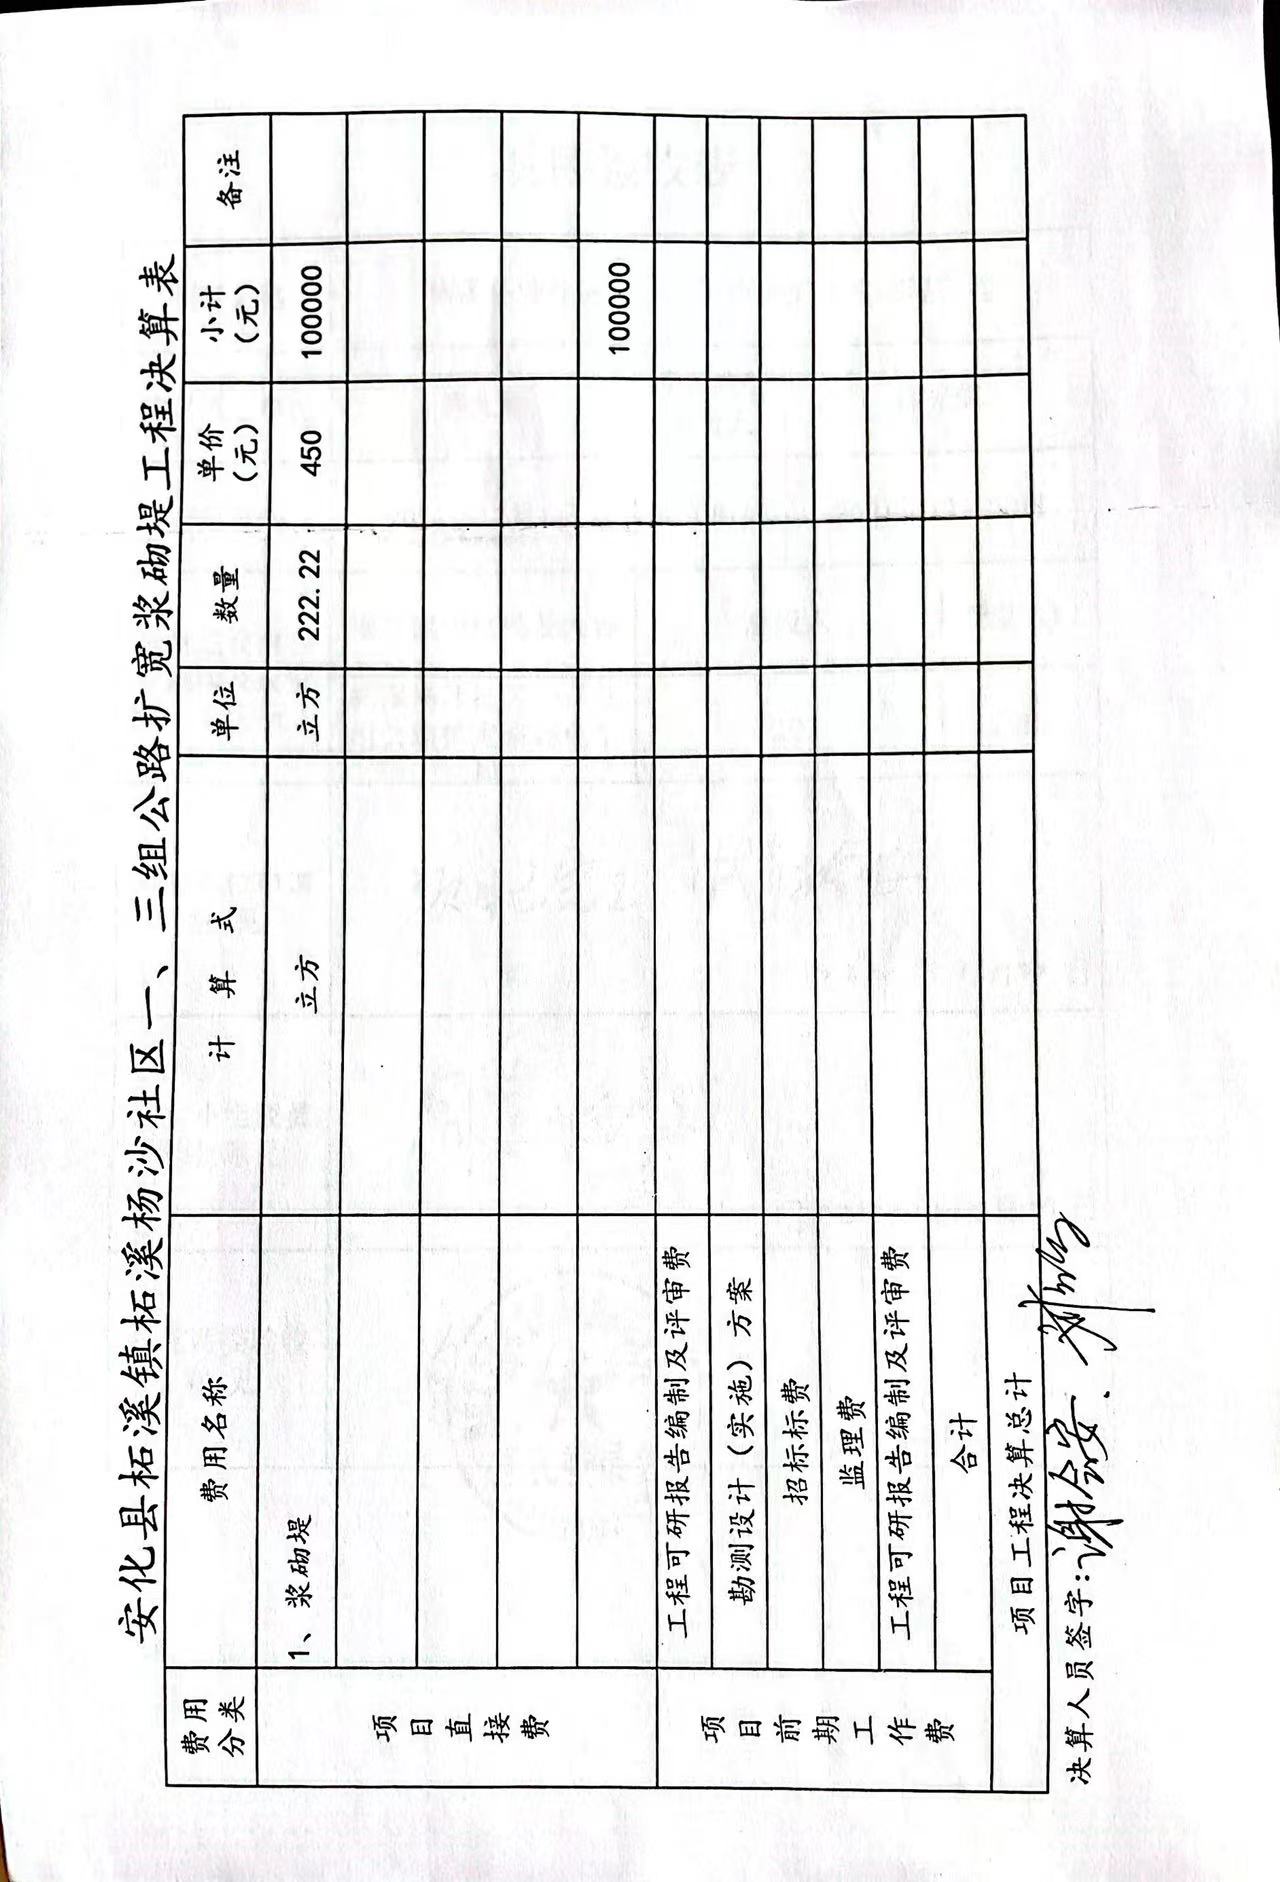 安化县柘溪镇柘溪杨沙社区一、三组公路扩宽浆砌堤工程决算表
费用分类 费用名称 计算式 单位 数量 单价(元) 小计(元) 备注
项目直接费 1、浆砌堤 立方 立方 222.22 450 100000
100000
项目前期工作费 工程可研报告编制及评审费
勘测设计（实施）方案
招标标费
监理费
工程可研报告编制及评审费
合计
项目工程决算总计
决算人员签字:谢会安、